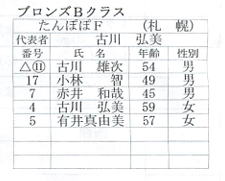 ブロンズBクラス
たんぽぽF (札 幌)
代表者 古川 弘美
番号 氏 名 年齢 性別
△⑪ 古川 雄次 54 男
17 小林 智 49 男
7 赤井 和哉 45 男
4 古川 弘美 59 女
5 有井真由美 57 女